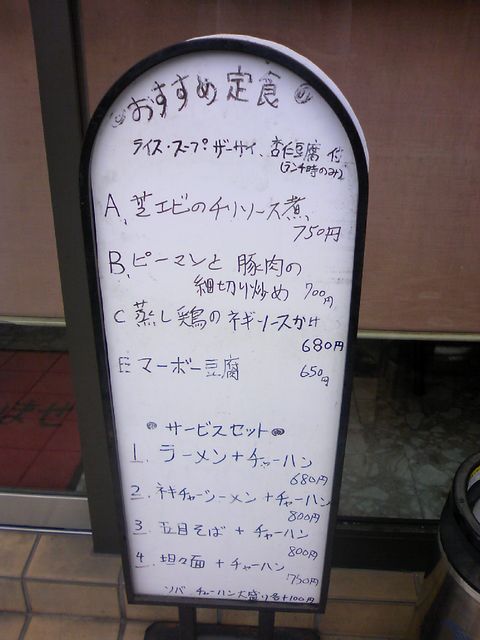 おすすめ定食
ライス・スープ ザーサイ、杏仁豆腐 付
(ランチ時のみ)
A、芝エビのチリソース煮
750円
B、ピーマンと 豚肉の
細切り炒め 700円
C 蒸し鶏のネギソースかけ
680円
E マーボー豆腐 650円
サービスセット
1. ラーメン+チャーハン
680円
2. ネギチャーシューメン+チャーハン
800円
3 五目そば + チャーハン
800円
4 坦々面 + チャーハン
750円
ソバ チャーハン大盛り各+100円